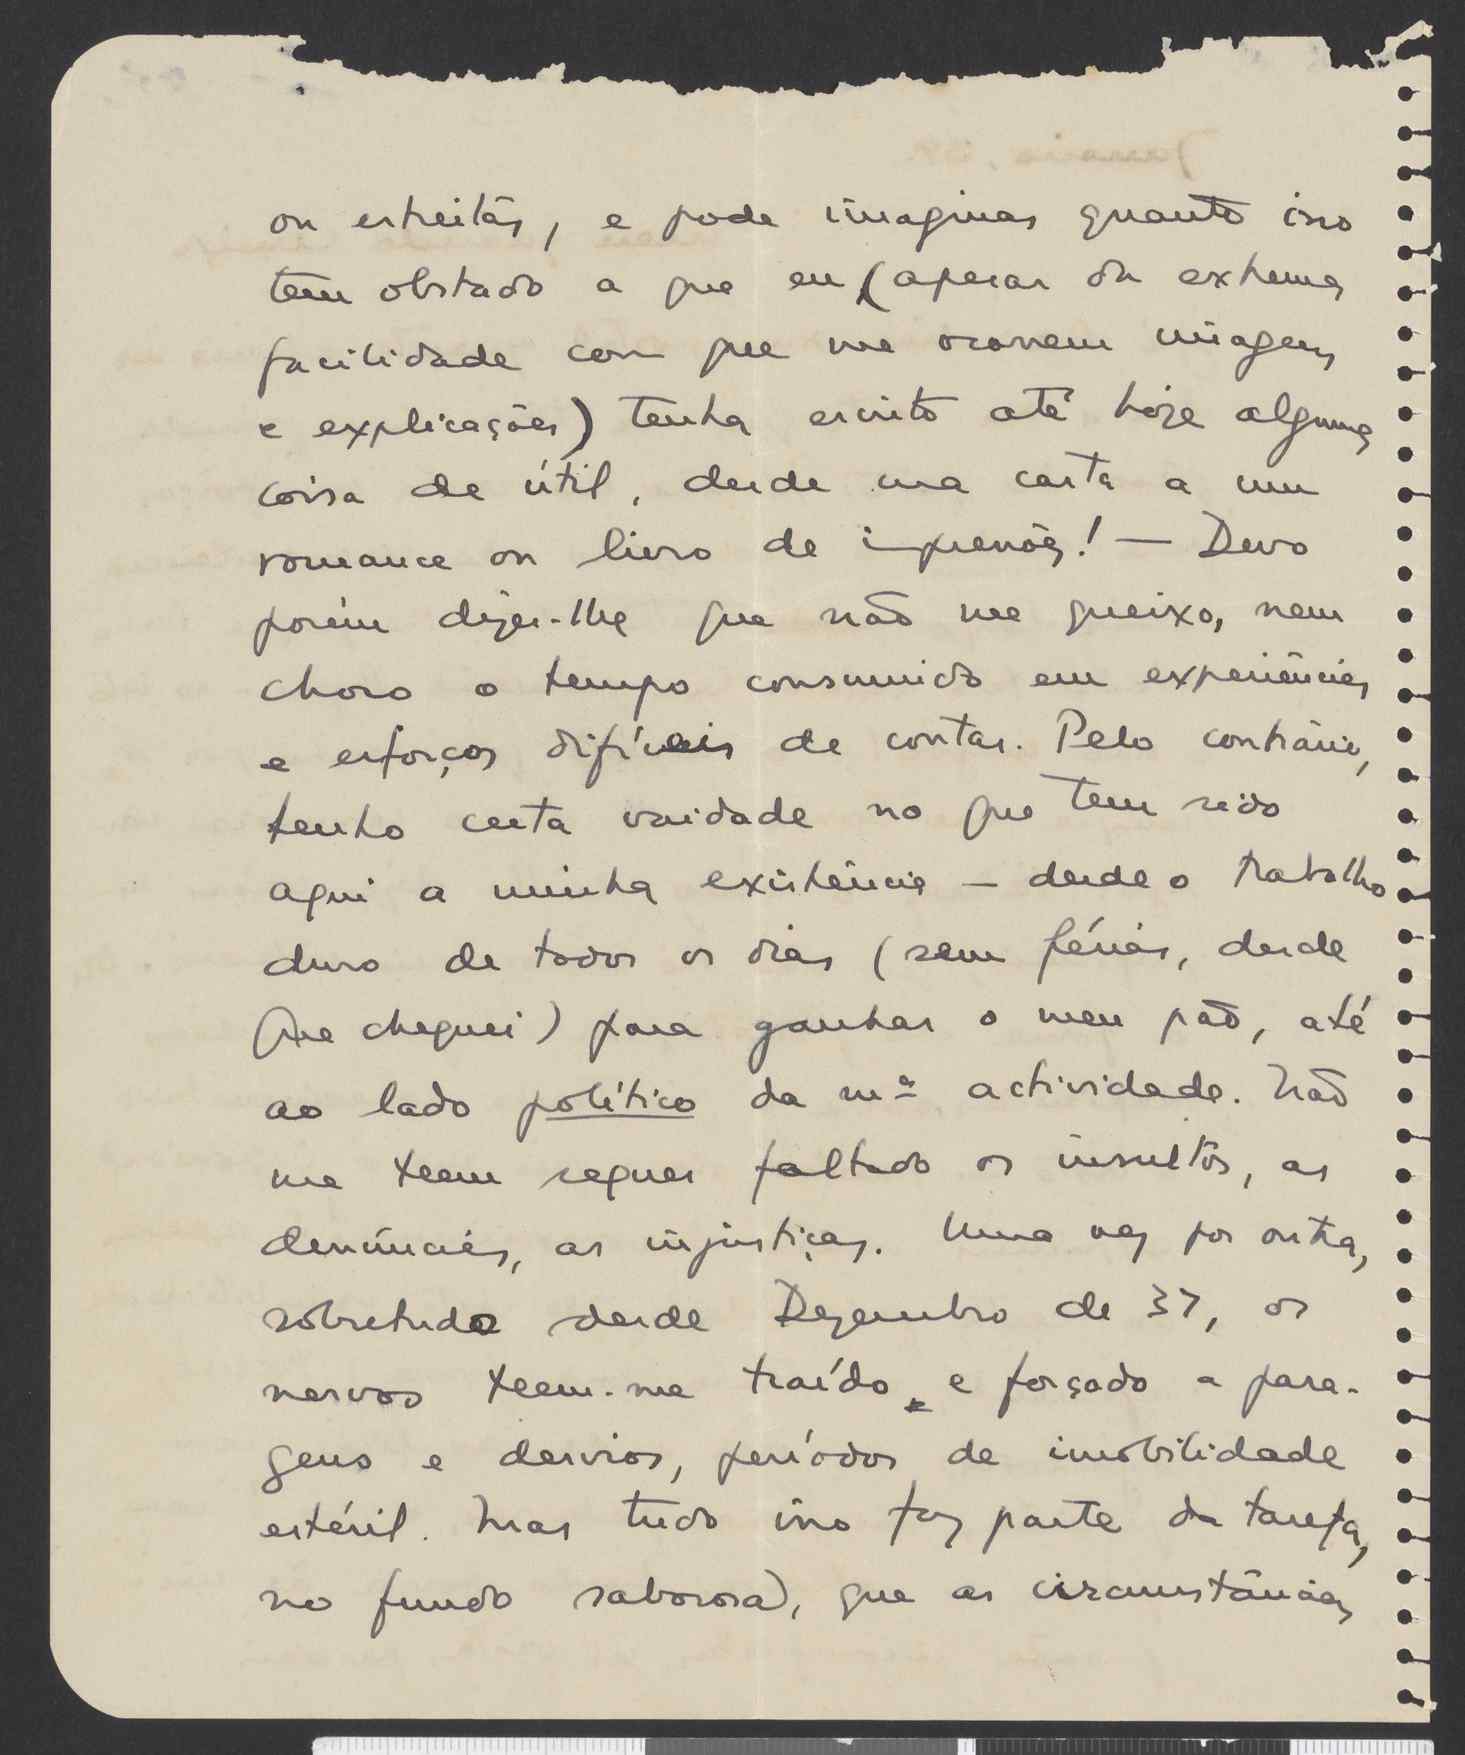 ou estreitas, e pode imaginar quanto isso
tem obstado a que eu (apesar da extrema
facilidade com que me ocorrem imagens
e explicações) tenha escrito até hoje alguma
coisa de útil, desde uma carta a um
romance ou livro de impressões! — Devo
porém dizer-lhe que não me queixo, nem
choro o tempo consumido em experiências
e esforços difíceis de contar. Pelo contrário,
tenho certa vaidade no que tem sido
aqui a minha existência — desde o trabalho
duro de todos os dias (sem férias, desde
que cheguei) para ganhar o meu pão, até
ao lado político da mª actividade. Não
me teem sequer faltado os insultos, as
denúncias, as injustiças. Uma vez por outra,
sobretudo desde Dezembro de 37, os
nervos teem-me traído e forçado a para-
gens e desvios, períodos de imobilidade
estéril. Mas tudo isso faz parte da tarefa,
no fundo saborosa, que as circunstâncias